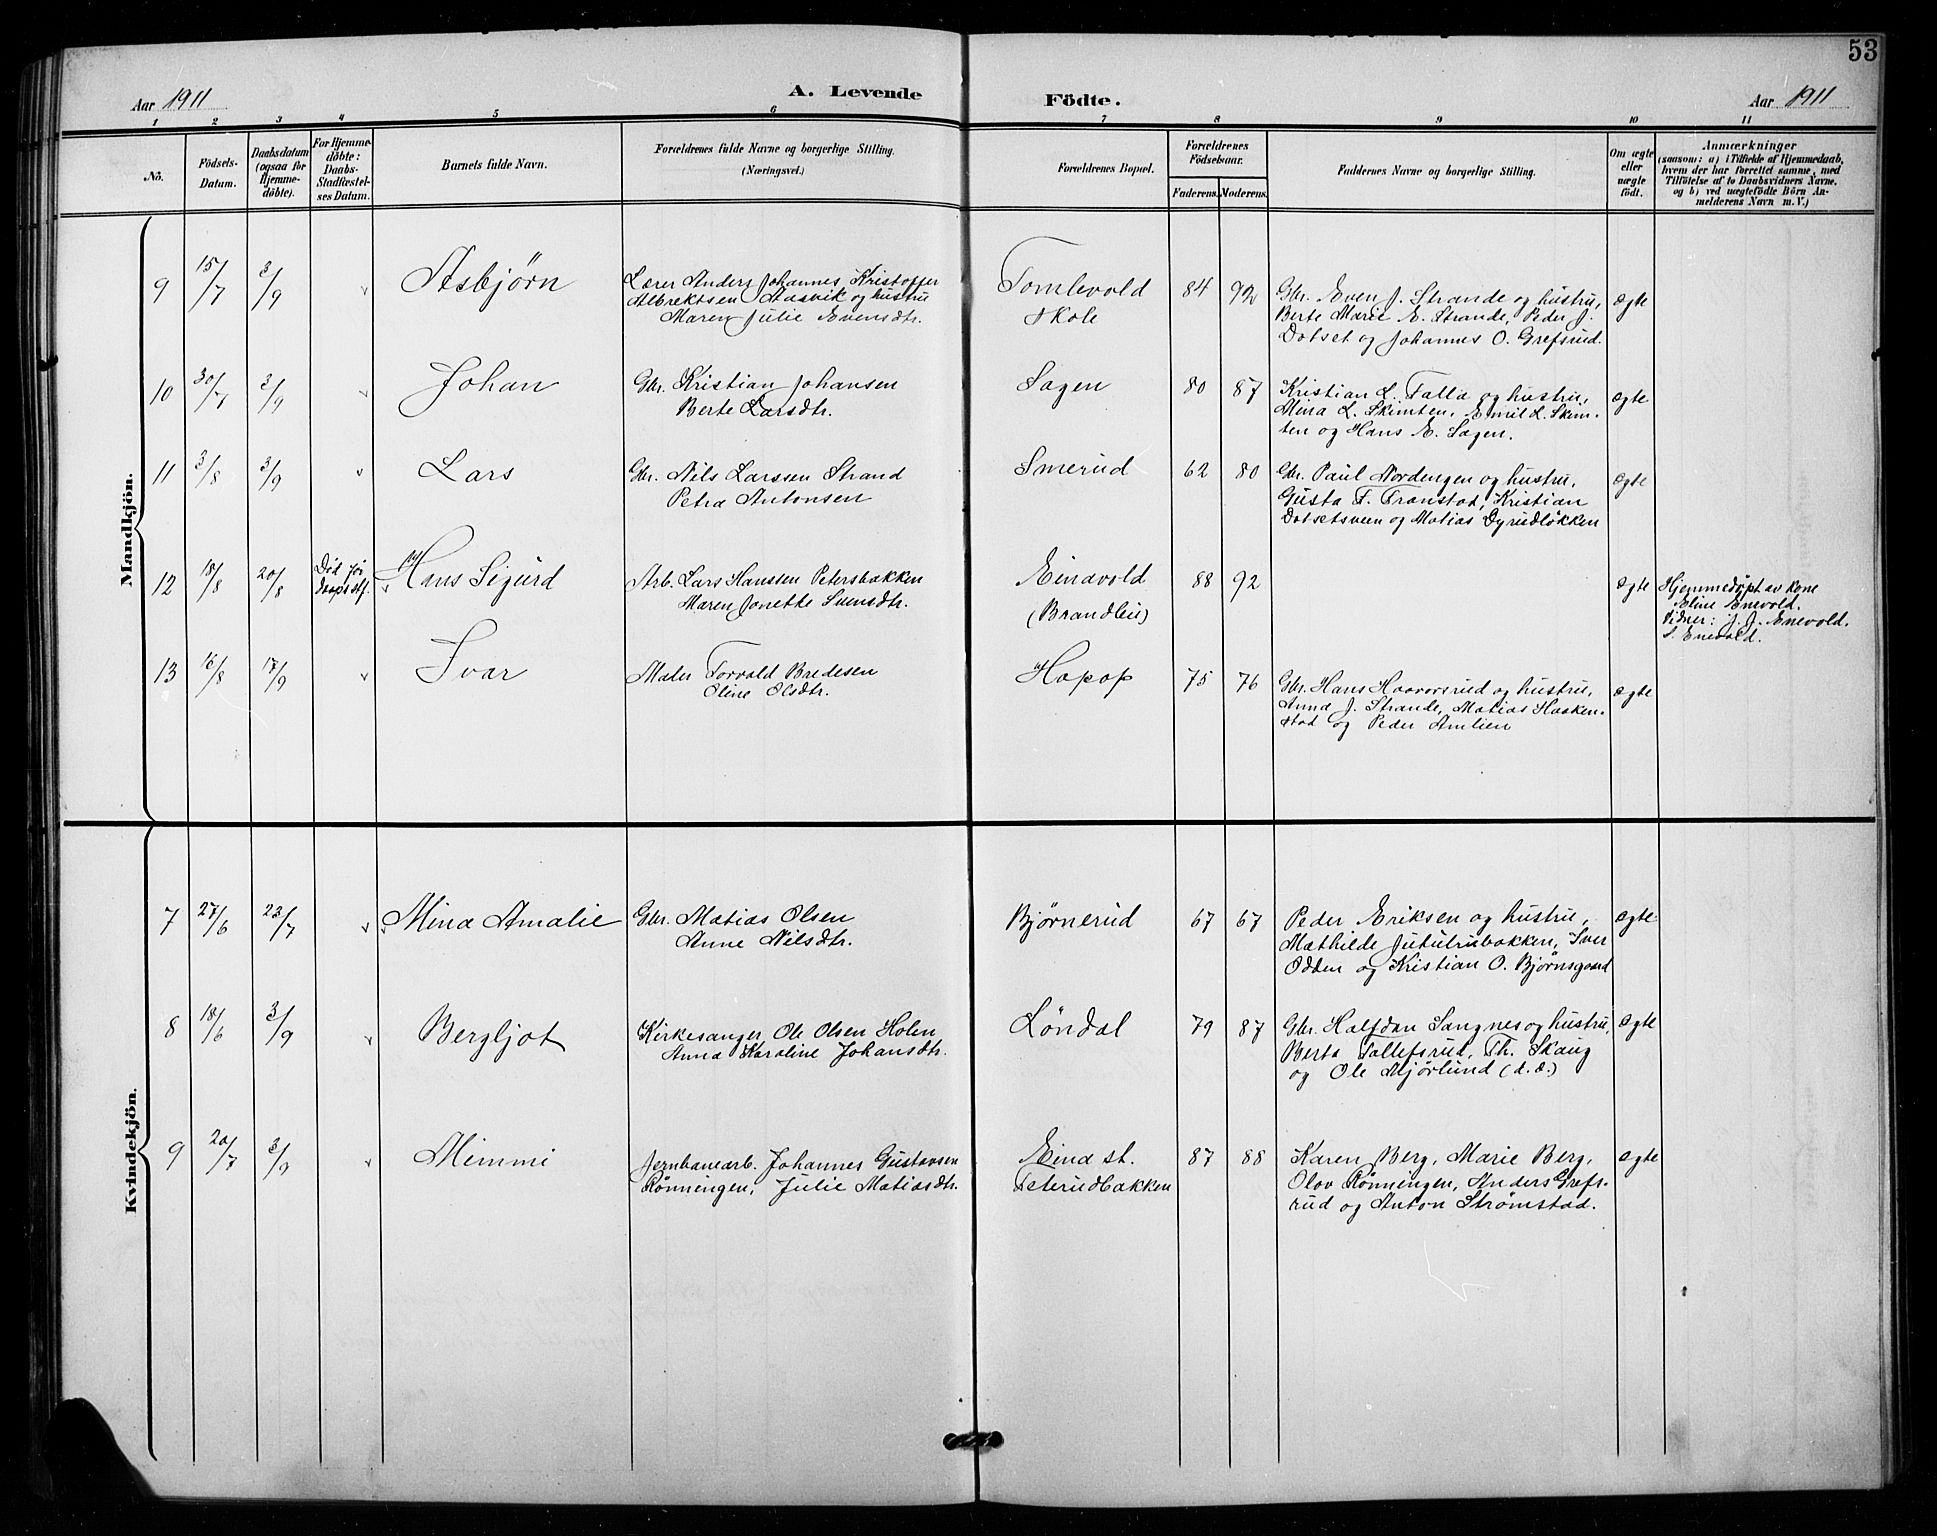 53
Aar 1911
A. Levende
Födte.
Aar 1911
1 2 3 4 5 6 7 8 9 10 11
No.
Födsels-
Datum.
Daabsdatum
(ogsaa for
Hjemme-
döbte).
For Hjemme-
döbte:
Daabs-
Stadfæstel-
ses Datum.
Barnets fulde Navn.
Forældrenes fulde Navne og borgerlige Stilling.
(Næringsvei.)
Forældrenes Bopæl.
Forældrenes
Födselsaar.
Faderens. Moderens.
Faddernes Navne og borgerlige Stilling.
Om ægte
eller
uægte
födt.
Anmærkninger
(saasom: a) i Tilfælde af Hjemmedaab,
hvem der har forrettet samme, med
Tilföielse af to Daabsvidners Navne,
og b) ved uægtefödte Börn An-
melderens Navn m. V.)
Mandkjön.
9 15/7 3/9 Asbjørn
Lærer Anders Johannes Kristoffer
Albrektsen Aasvik og hustru
Maren Julie Evensdtr.
Tomlevold
skole
84 92
Gbr. Even J. Strande og hustru,
Berte Marie E. Strande, Peder J.
Dotset og Johannes O. Grefsrud.
ægte
10 30/7 3/9 Johan
Gbr. Kristian Johansen
Berte Larsdtr.
Sagen
80 87
Kristian L. Falla og hustru,
Mina L. Skimten, Emil L. Skim-
ten og Hans E. Sagen.
ægte
11 3/8 3/9 Lars
Gbr. Nils Larssen Strand
Petra Antonsen
Smerud
62 80
Gbr. Paul Nordengen og hustru,
Gusta F. Transtad, Kristian
Dotsetsveen og Matias Dyrudløkken
ægte
12 18/8 20/8
Død før
daapsstf.
Hans Sigurd
Arb. Lars Hanssen Petersbakken
Maren Jonette Svensdtr.
Einavold
(Brandlie)
88 92
ægte
Hjemmedøpt av kone
Eline Enevold.
Vidner: J. J. Enevold.
S. Enevold.
13 16/8 17/9 Ivar
Maler Torvald Bredesen
Oline Olsdtr.
Hapop
75 76
Gbr. Hans Haavorsrud og hustru,
Anna J. Strande, Matias Haaken-
stad og Peder Amlien
ægte
Kvindekjön.
7 27/6 23/7 Mina Amalie
Gbr. Matias Olsen
Anne Nilsdtr.
Bjørnerud
67 67
Peder Eriksen og hustru,
Mathilde Jutulrubakken, Iver
Odden og Kristian O. Bjørnsgaard
ægte
8 18/6 3/9 Bergljot
Kirkesanger Ole Olsen Holen
Anna Karoline Johansdtr.
Løndal
79 87
Gbr. Halfdan Sangnes og hustru,
Berta Tollefsrud, Th. Skaug
og Ole Mjørlund (d. æ.)
ægte
9 20/7 3/9 Mimmi
Jernbanearb. Johannes Gustavsen
Rønningen, Julie Matiasdtr.
Eina st.
Teterudbakken
87 88
Karen Berg, Marie Berg,
Olov Rønningen, Anders Grefs-
rud og Anton Strømstad.
ægte